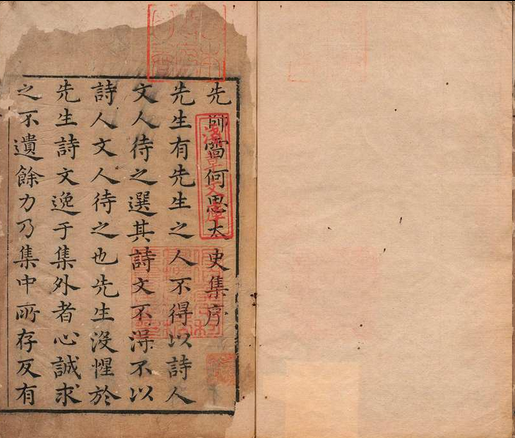 先師雷何思太史集序
先生有先生之人不得以詩人
文人待之選其詩文不得不以
詩人文人待之也先生沒惺於
先生詩文逸于集外者心誠求
之不遺餘力乃集中所存反有